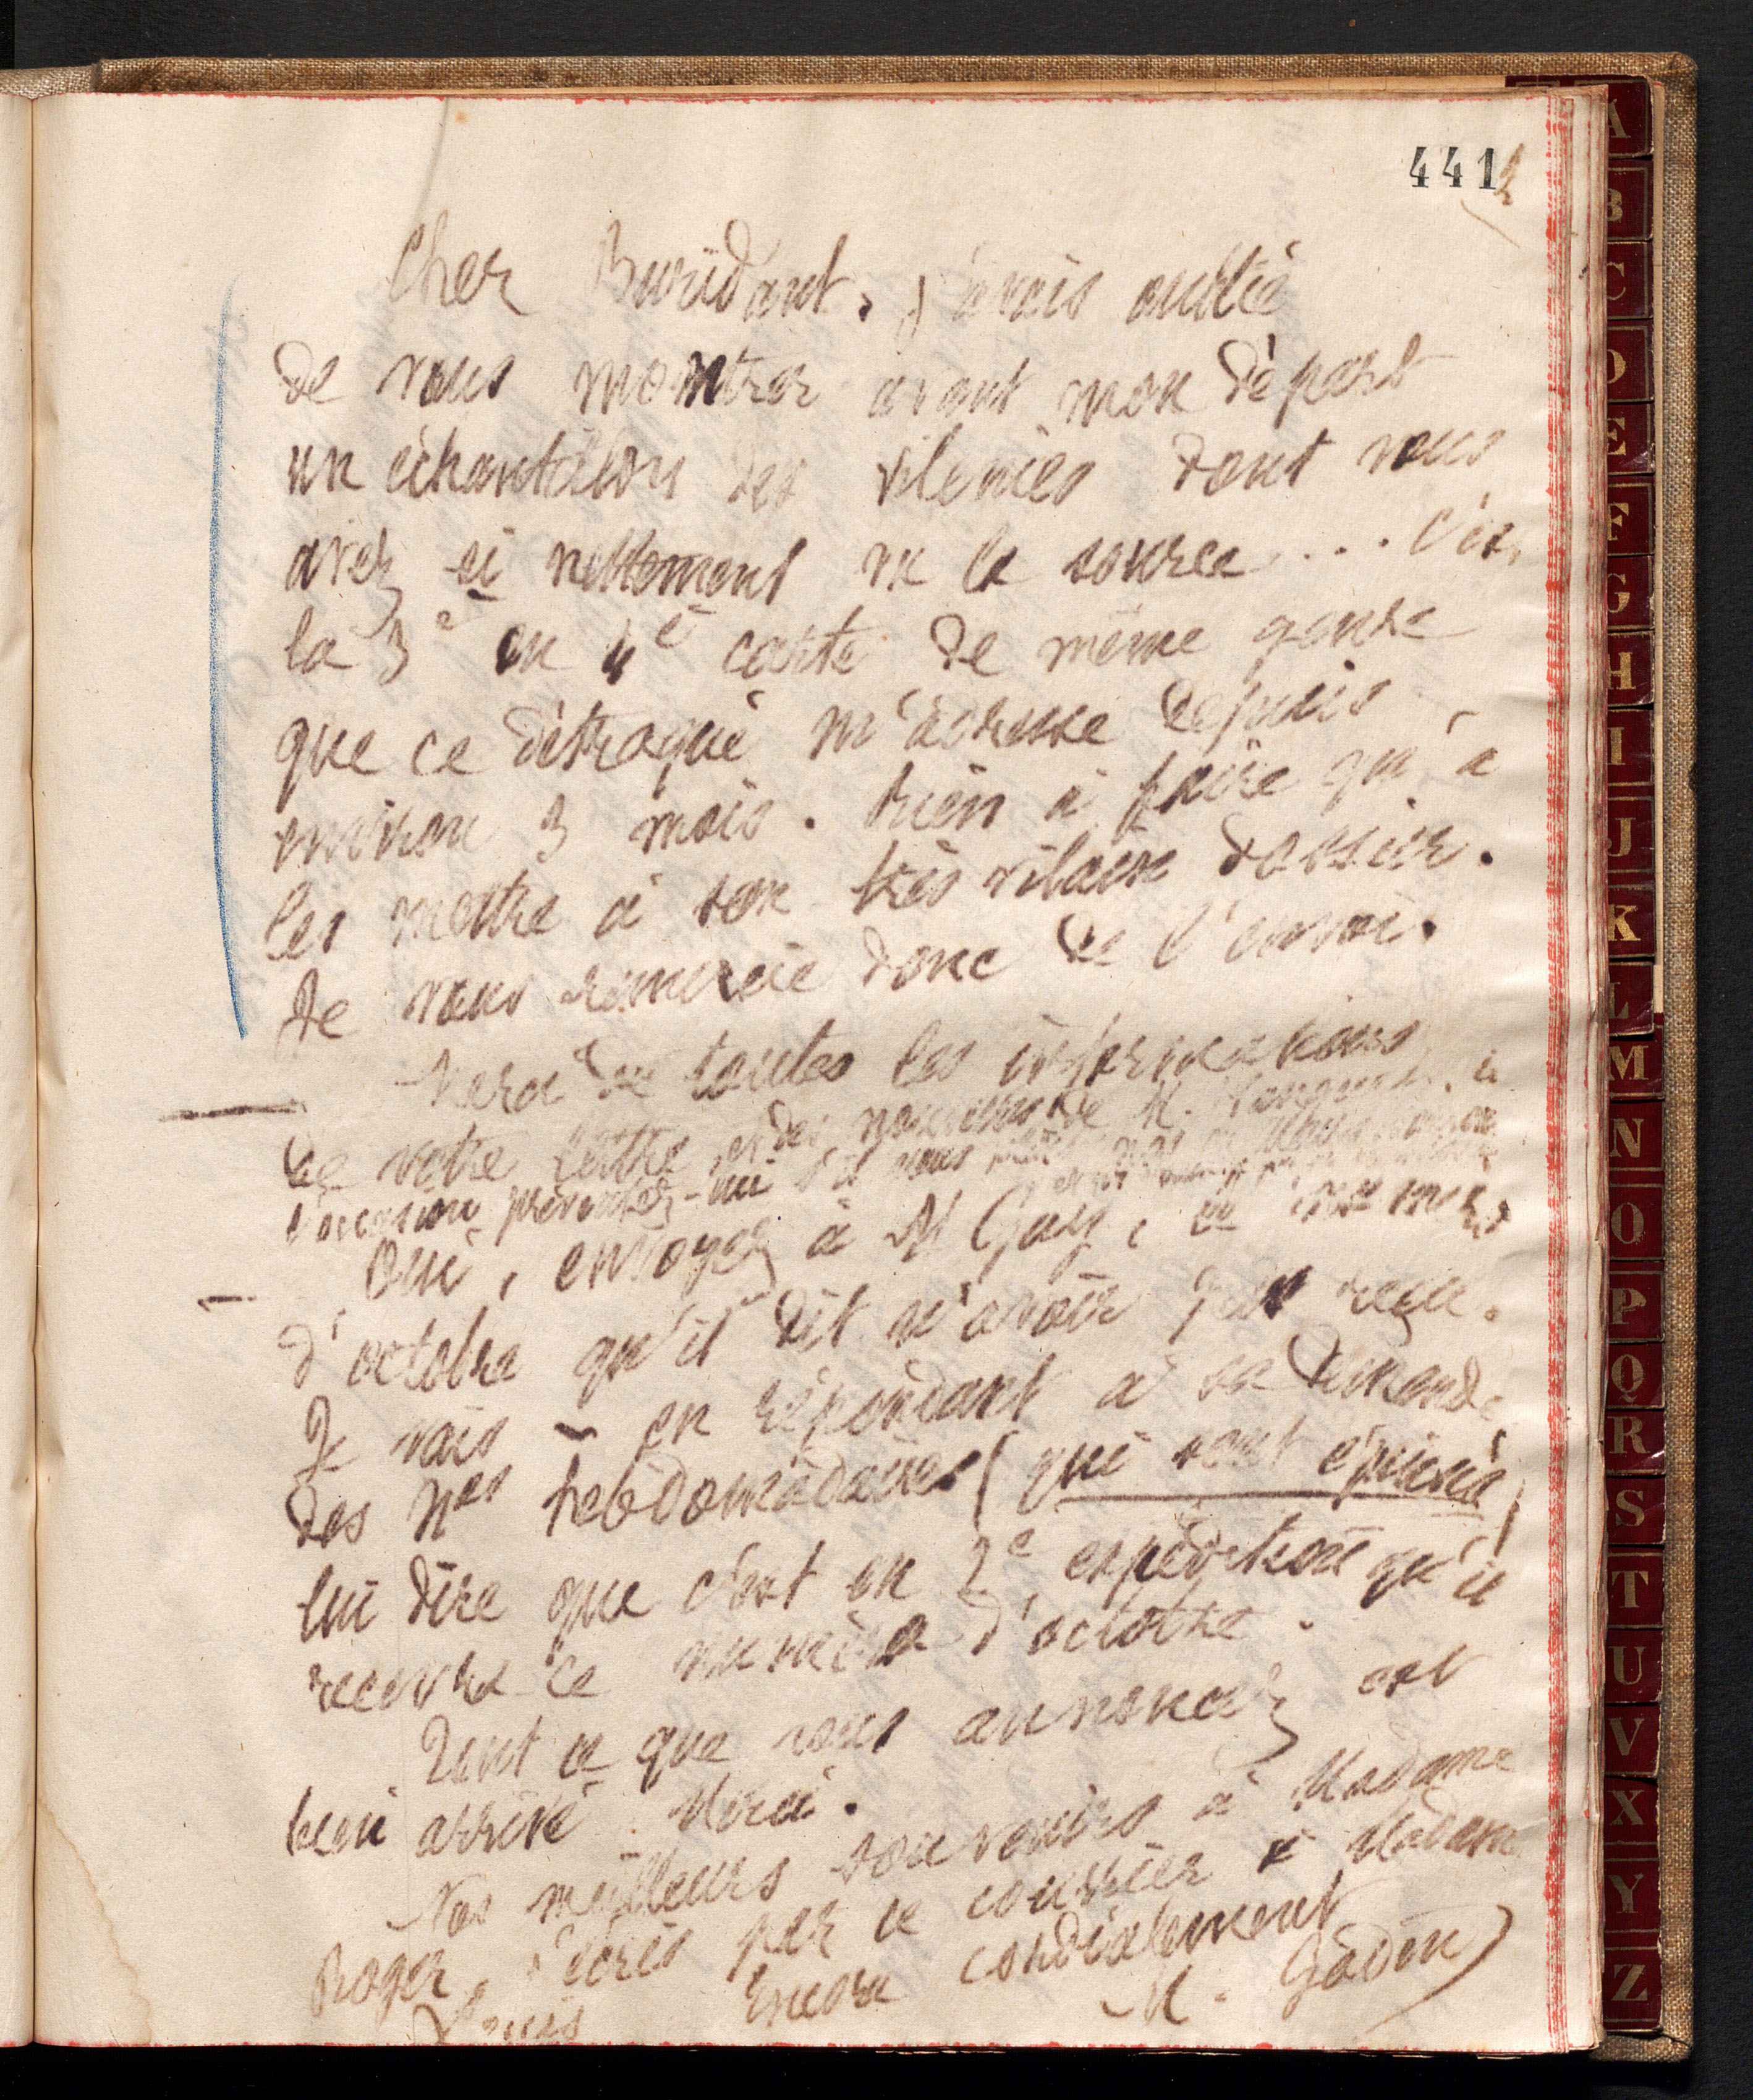 441 2
Cher Buridant. J'avais oublié
de vous montrer avant mon départ
un échantillon des vilenies dont vous
avez si nettement vu la source ... C'est
la 3e ou 4e carte de même genre
que ce détraqué m'adresse depuis
environ 3 mois. Rien à faire qu'à
les mettre à son très vilain dossier.
Je vous remercie donc de l'envoi.
Merci de toutes les informations
de votre lettre, et des nouvelles de M.
l'occasion présentez-lui s'il vous
Oui, envoyez à M Gay, le
d'octobre qu'il dit n'avoir pas reçu.
Je vais — en répondant à sa demande
des Nos hebdomadaires (qui sont épuisés)
lui dire que c'est en 2e expédition qu'il
recevra ce numéro d'octobre.
Tout ce que vous annoncez est
bien arrivé. Merci.
Nos meilleurs souvenirs à Madame
Roger. J'écris par ce courrier à Madame
Louis Encore cordialement
M. Godin